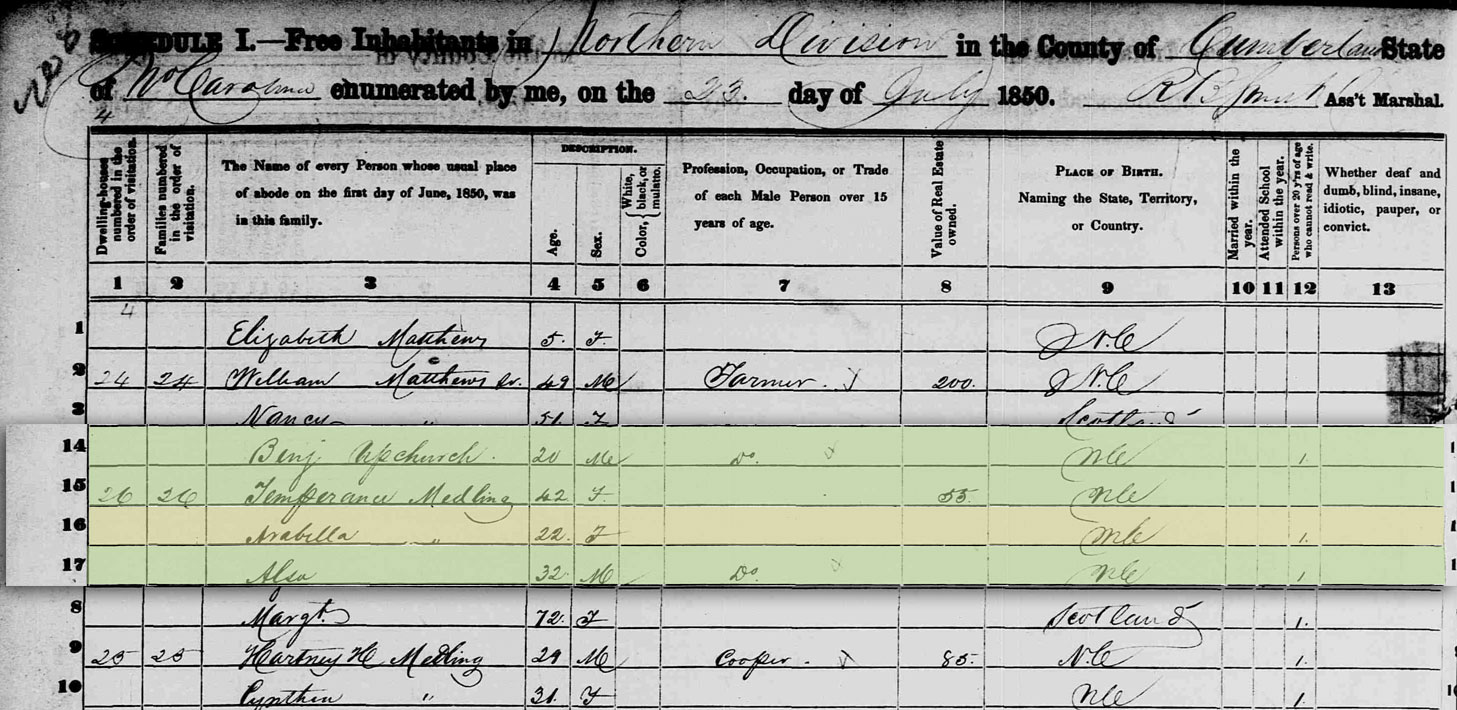 SCHEDULE I.—Free Inhabitants in Northern Division in the County of Cumberland State
of No Carolina enumerated by me, on the 23. day of July 1850. Ass't Marshal.
4
Dwelling-houses numbered in the order of visitation.
Families numbered in the order of visitation.
The Name of every Person whose usual place of abode on the first day of June, 1850, was in this family.
DESCRIPTION.
Age.
Sex.
Color, { White, black, or mulatto.
Profession, Occupation, or Trade of each Male Person over 15 years of age.
Value of Real Estate owned.
PLACE OF BIRTH. Naming the State, Territory, or Country.
Married within the year.
Attended School within the year.
Persons over 20 y'rs of age who cannot read & write.
Whether deaf and dumb, blind, insane, idiotic, pauper, or convict.
1 2 3 4 5 6 7 8 9 10 11 12 13
4
1 Elizabeth Matthews 5. F. N.C
2 24 24 William Matthews Sr. 49 M Farmer. 200. N.C
3 Nancy " 51 F Scotland
14 Benj Upchurch. 20 M Do. NC 1.
15 26 26 Temperance Medling 42 F 55. NC
16 Arabella " 22. F NC 1.
17 Alsa 32 M Do. NC 1
8 Margt. 72. F Scotland 1.
9 25 25 Hartney H Medling 29 M Cooper. 85. N.C 1.
10 Cynthia " 31. F NC 1.